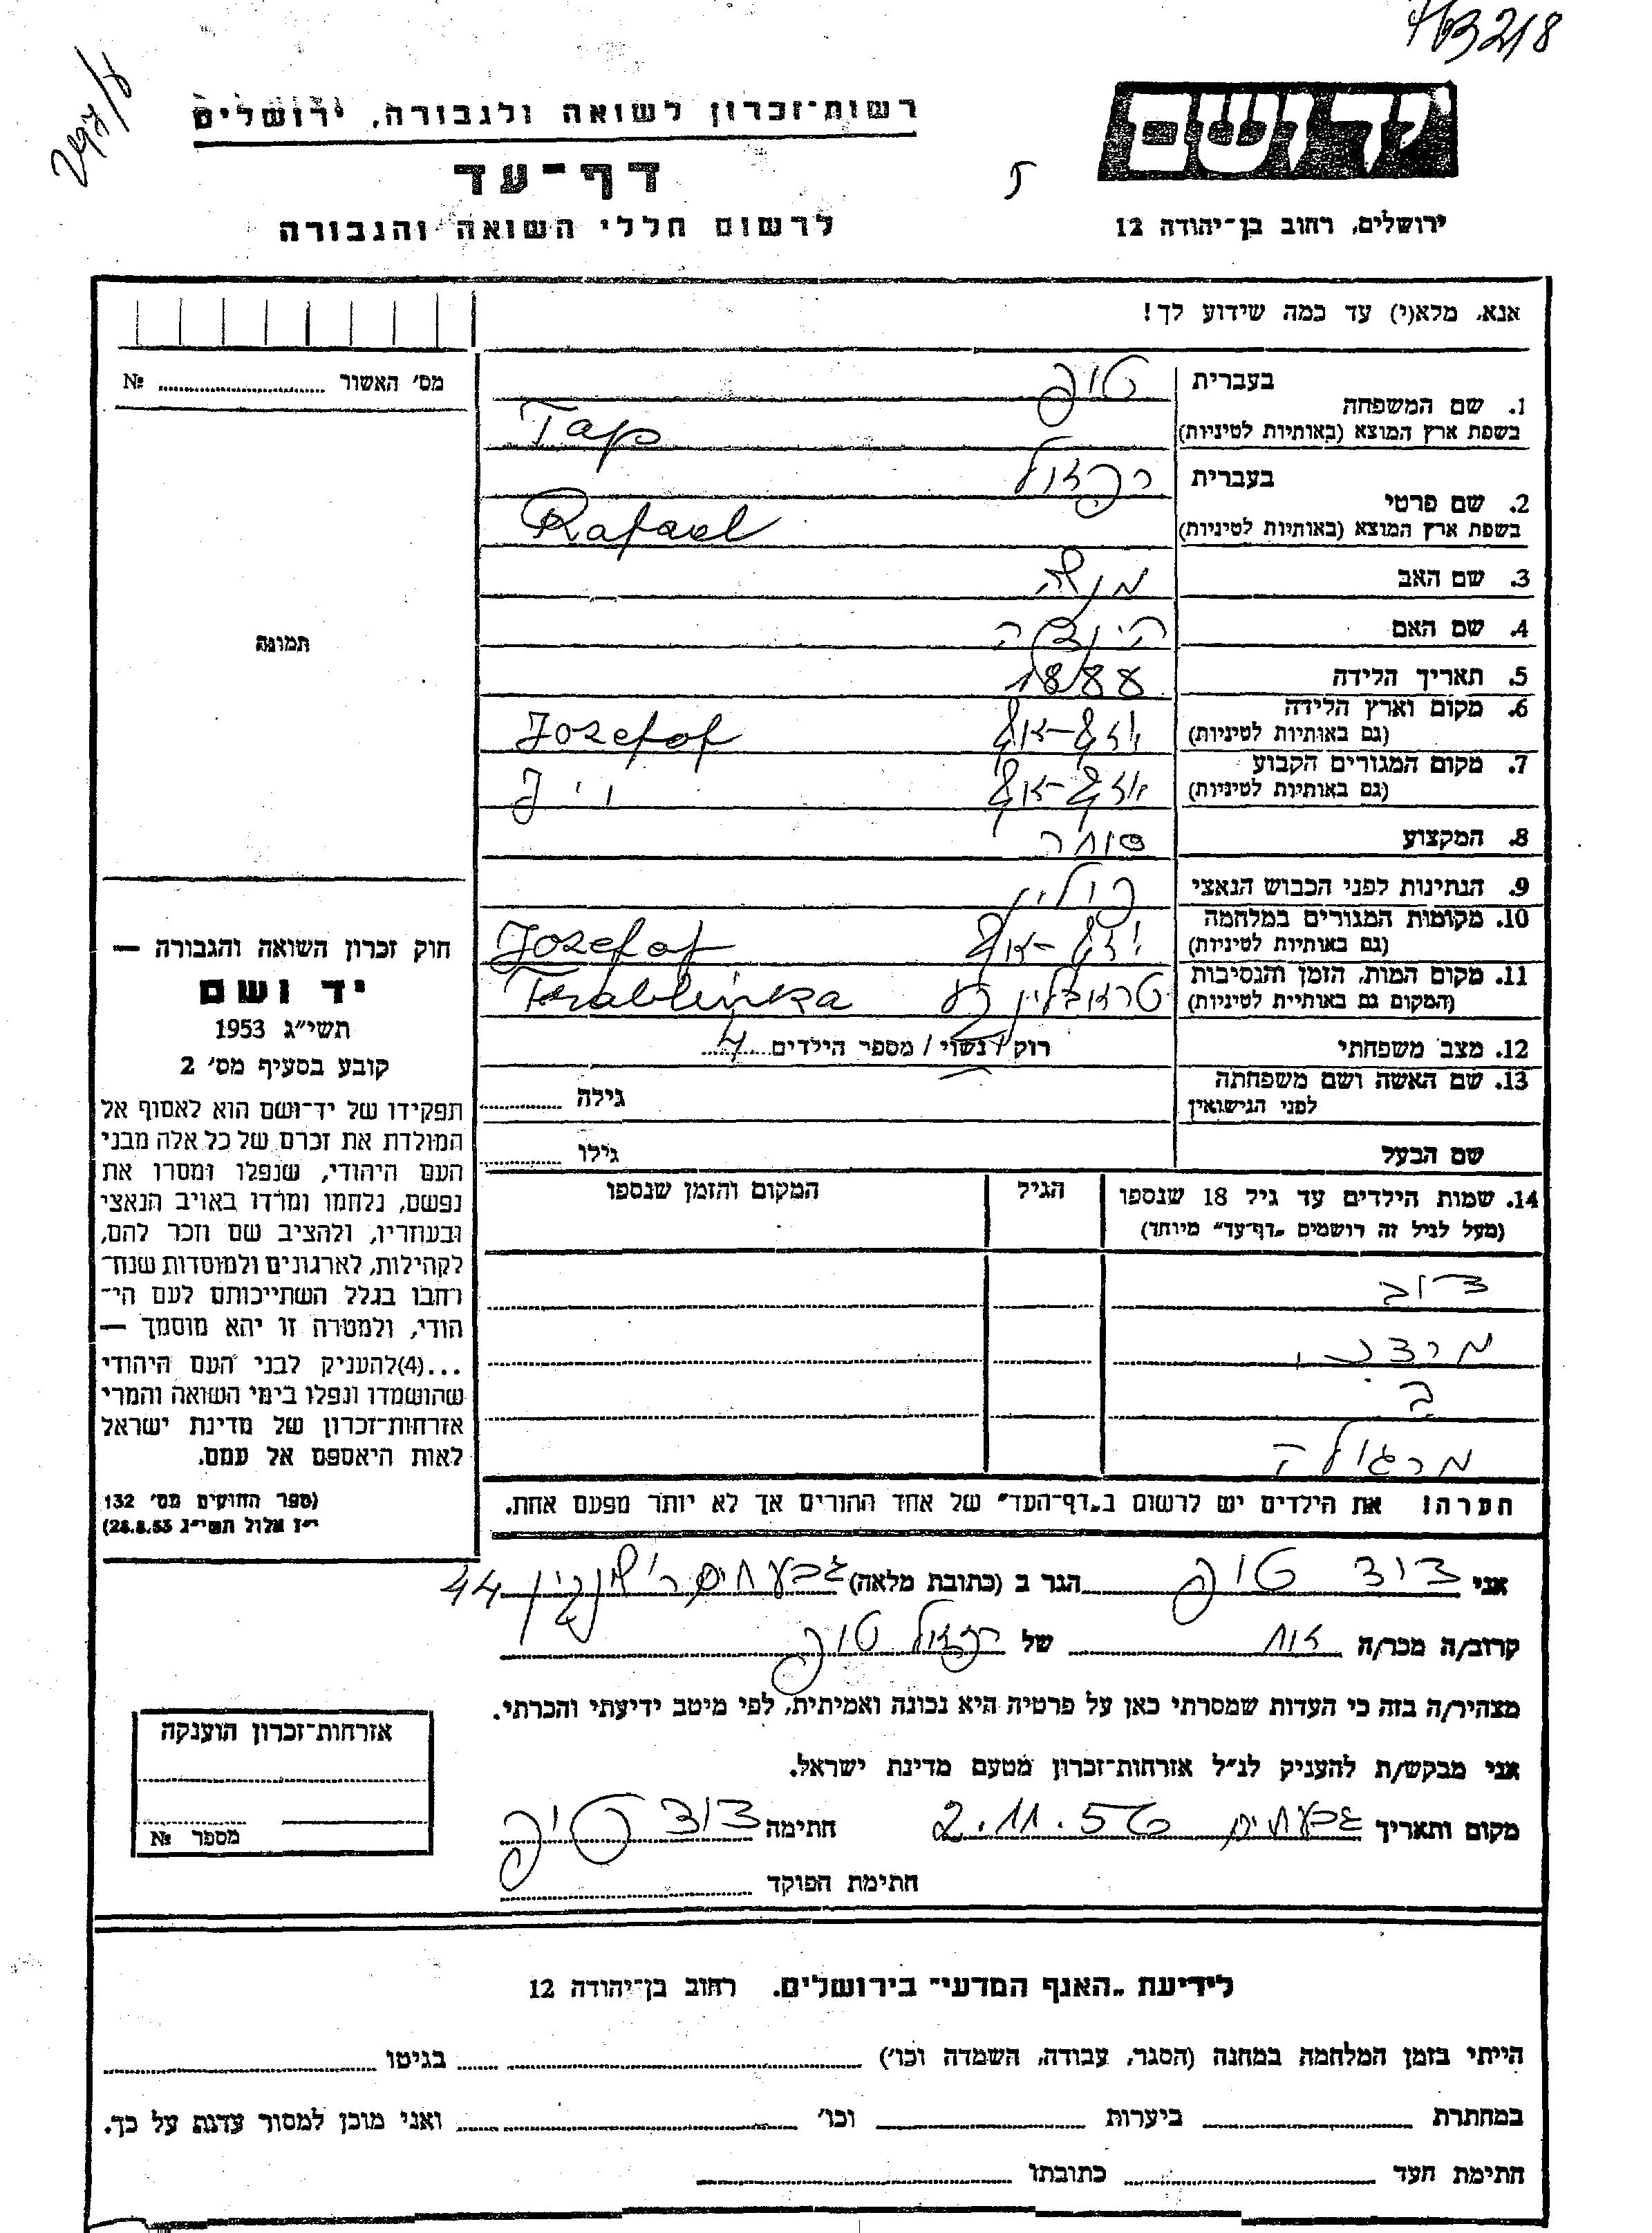 463218
רשות־זכרון לשואה ולגבורה, ירושלים
דף־עד
לרשום חללי השואה והגבורה
יד ושם
ירושלים, רחוב בן־יהודה 12
אנא, מלא(י) עד כמה שידוע לך!
מס׳ האשור № ....................
1. שם המשפחה
בעברית טוף
בשפת ארץ המוצא (באותיות לטיניות) Tap
2. שם פרטי
בעברית רפאל
בשפת ארץ המוצא (באותיות לטיניות) Rafael
3. שם האב מנשה
4. שם האם הינדה
5. תאריך הלידה 1888
6. מקום וארץ הלידה
(גם באותיות לטיניות) יוזף-אוף Jozefof
7. מקום המגורים הקבוע
(גם באותיות לטיניות) יוזף-אוף
8. המקצוע סוחר
9. הנתינות לפני הכבוש הנאצי פולין
10. מקומות המגורים במלחמה
(גם באותיות לטיניות) יוזף-אוף Jozefof
11. מקום המות, הזמן והנסיבות
(המקום גם באותיות לטיניות) Trablinka
12. מצב משפחתי רוק / נשוי / מספר הילדים 4
13. שם האשה ושם משפחתה
לפני הנישואין גילה
שם הבעל גילו
14. שמות הילדים עד גיל 18 שנספו
(מעל לגיל זה רושמים „דף־עד״ מיוחד)
הגיל
המקום והזמן שנספו
מרגולה
הערה! את הילדים יש לרשום ב„דף־העד״ של אחד ההורים אך לא יותר מפעם אחת.
תמונה
חוק זכרון השואה והגבורה —
יד ושם
תשי״ג 1953
קובע בסעיף מס׳ 2
תפקידו של יד־ושם הוא לאסוף אל
המולדת את זכרם של כל אלה מבני
העם היהודי, שנפלו ומסרו את
נפשם, נלחמו ומרדו באויב הנאצי
ובעוזריו, ולהציב שם וזכר להם,
לקהילות, לארגונים ולמוסדות שנח־
רבו בגלל השתייכותם לעם הי־
הודי, ולמטרה זו יהא מוסמך —
...(4)להעניק לבני העם היהודי
שהושמדו ונפלו בימי השואה והמרי
אזרחות־זכרון של מדינת ישראל
לאות היאספם אל עמם.
(ספר החוקים מס׳ 132
י״ז אלול תשי״ג 28.8.53)
אני דוד טוף הגר ב (כתובת מלאה) גבעתיים 44
קרוב/ה מכר/ה אח של רפאל טוף
מצהיר/ה בזה כי העדות שמסרתי כאן על פרטיה היא נכונה ואמיתית, לפי מיטב ידיעתי והכרתי.
אני מבקש/ת להעניק לנ״ל אזרחות־זכרון מטעם מדינת ישראל.
מקום ותאריך גבעתיים 2.11.56 חתימה דוד טוף
חתימת הפוקד
אזרחות־זכרון הוענקה
מספר №
לידיעת „האגף המדעי״ בירושלים. רחוב בן־יהודה 12
הייתי בזמן המלחמה במחנה (הסגר, עבודה, השמדה וכו׳) בגיטו
במחתרת ביערות וכו׳ ואני מוכן למסור עדות על כך.
חתימת העד כתובתו